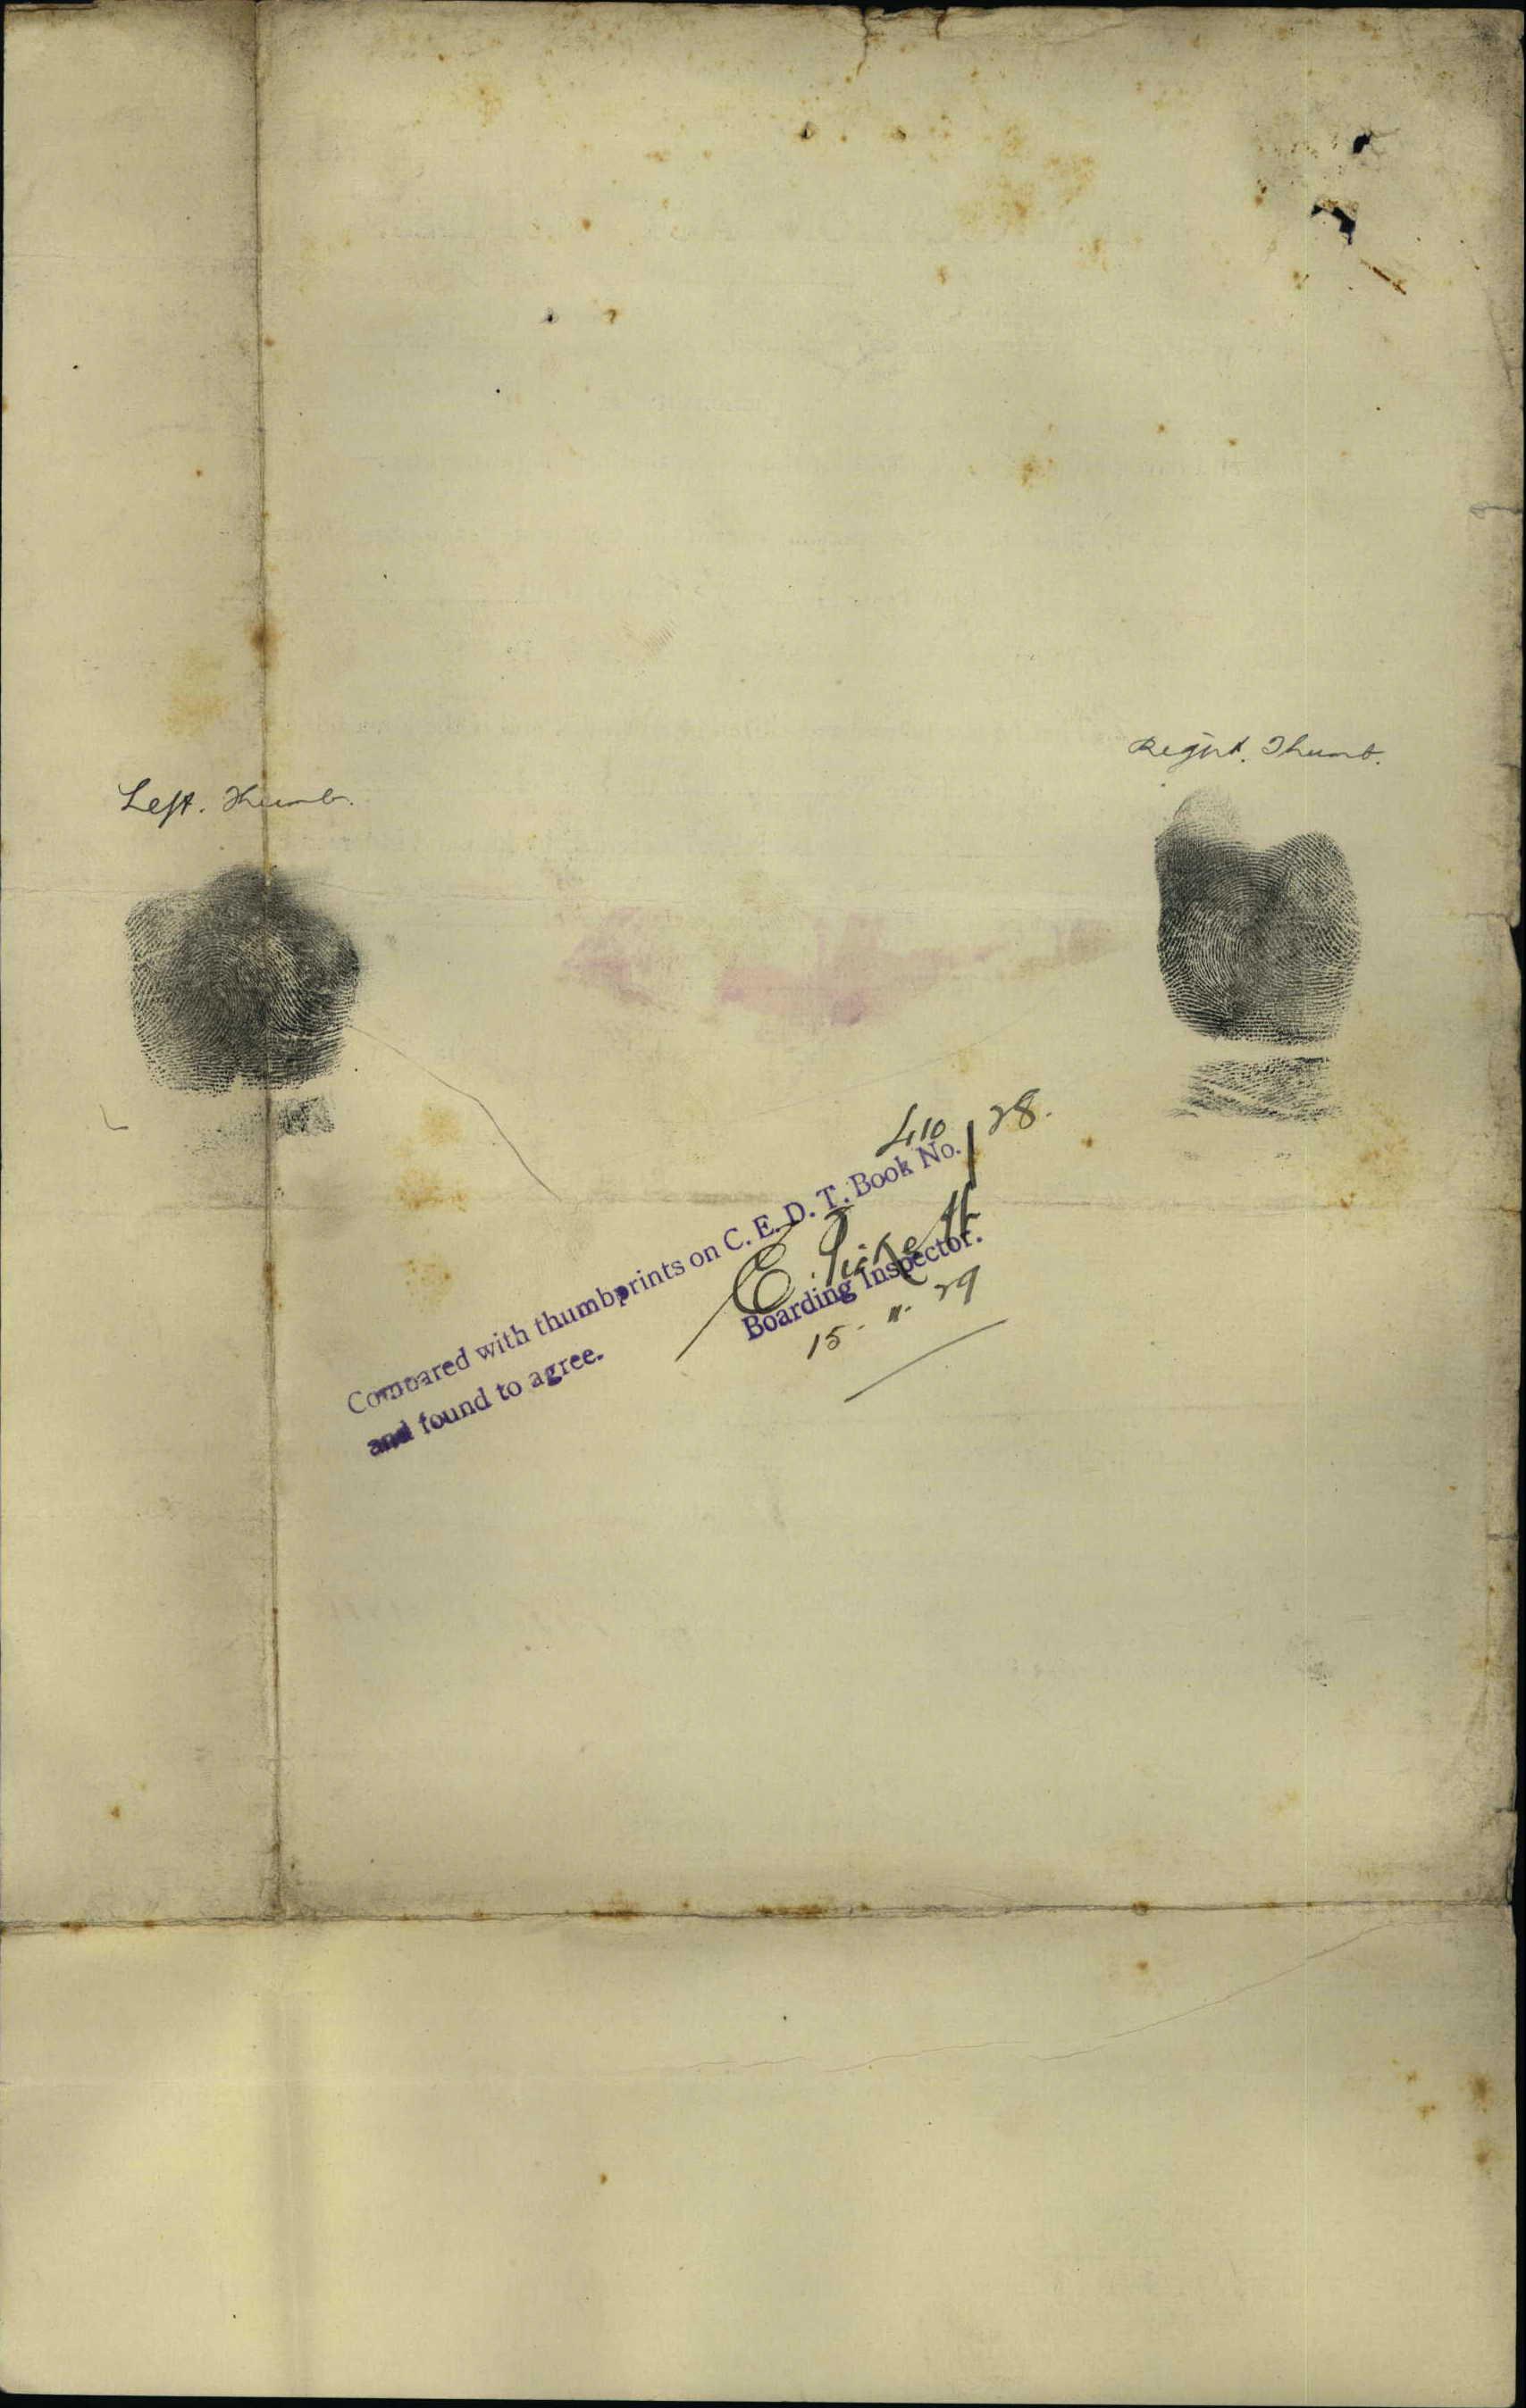 Right. Thumb.
Left. Thumb.
410 / 28.
Compared with thumbprints on C. E. D. T. Book No.
and found to agree.
E. Pickett
Boarding Inspector.
15. 11. 29